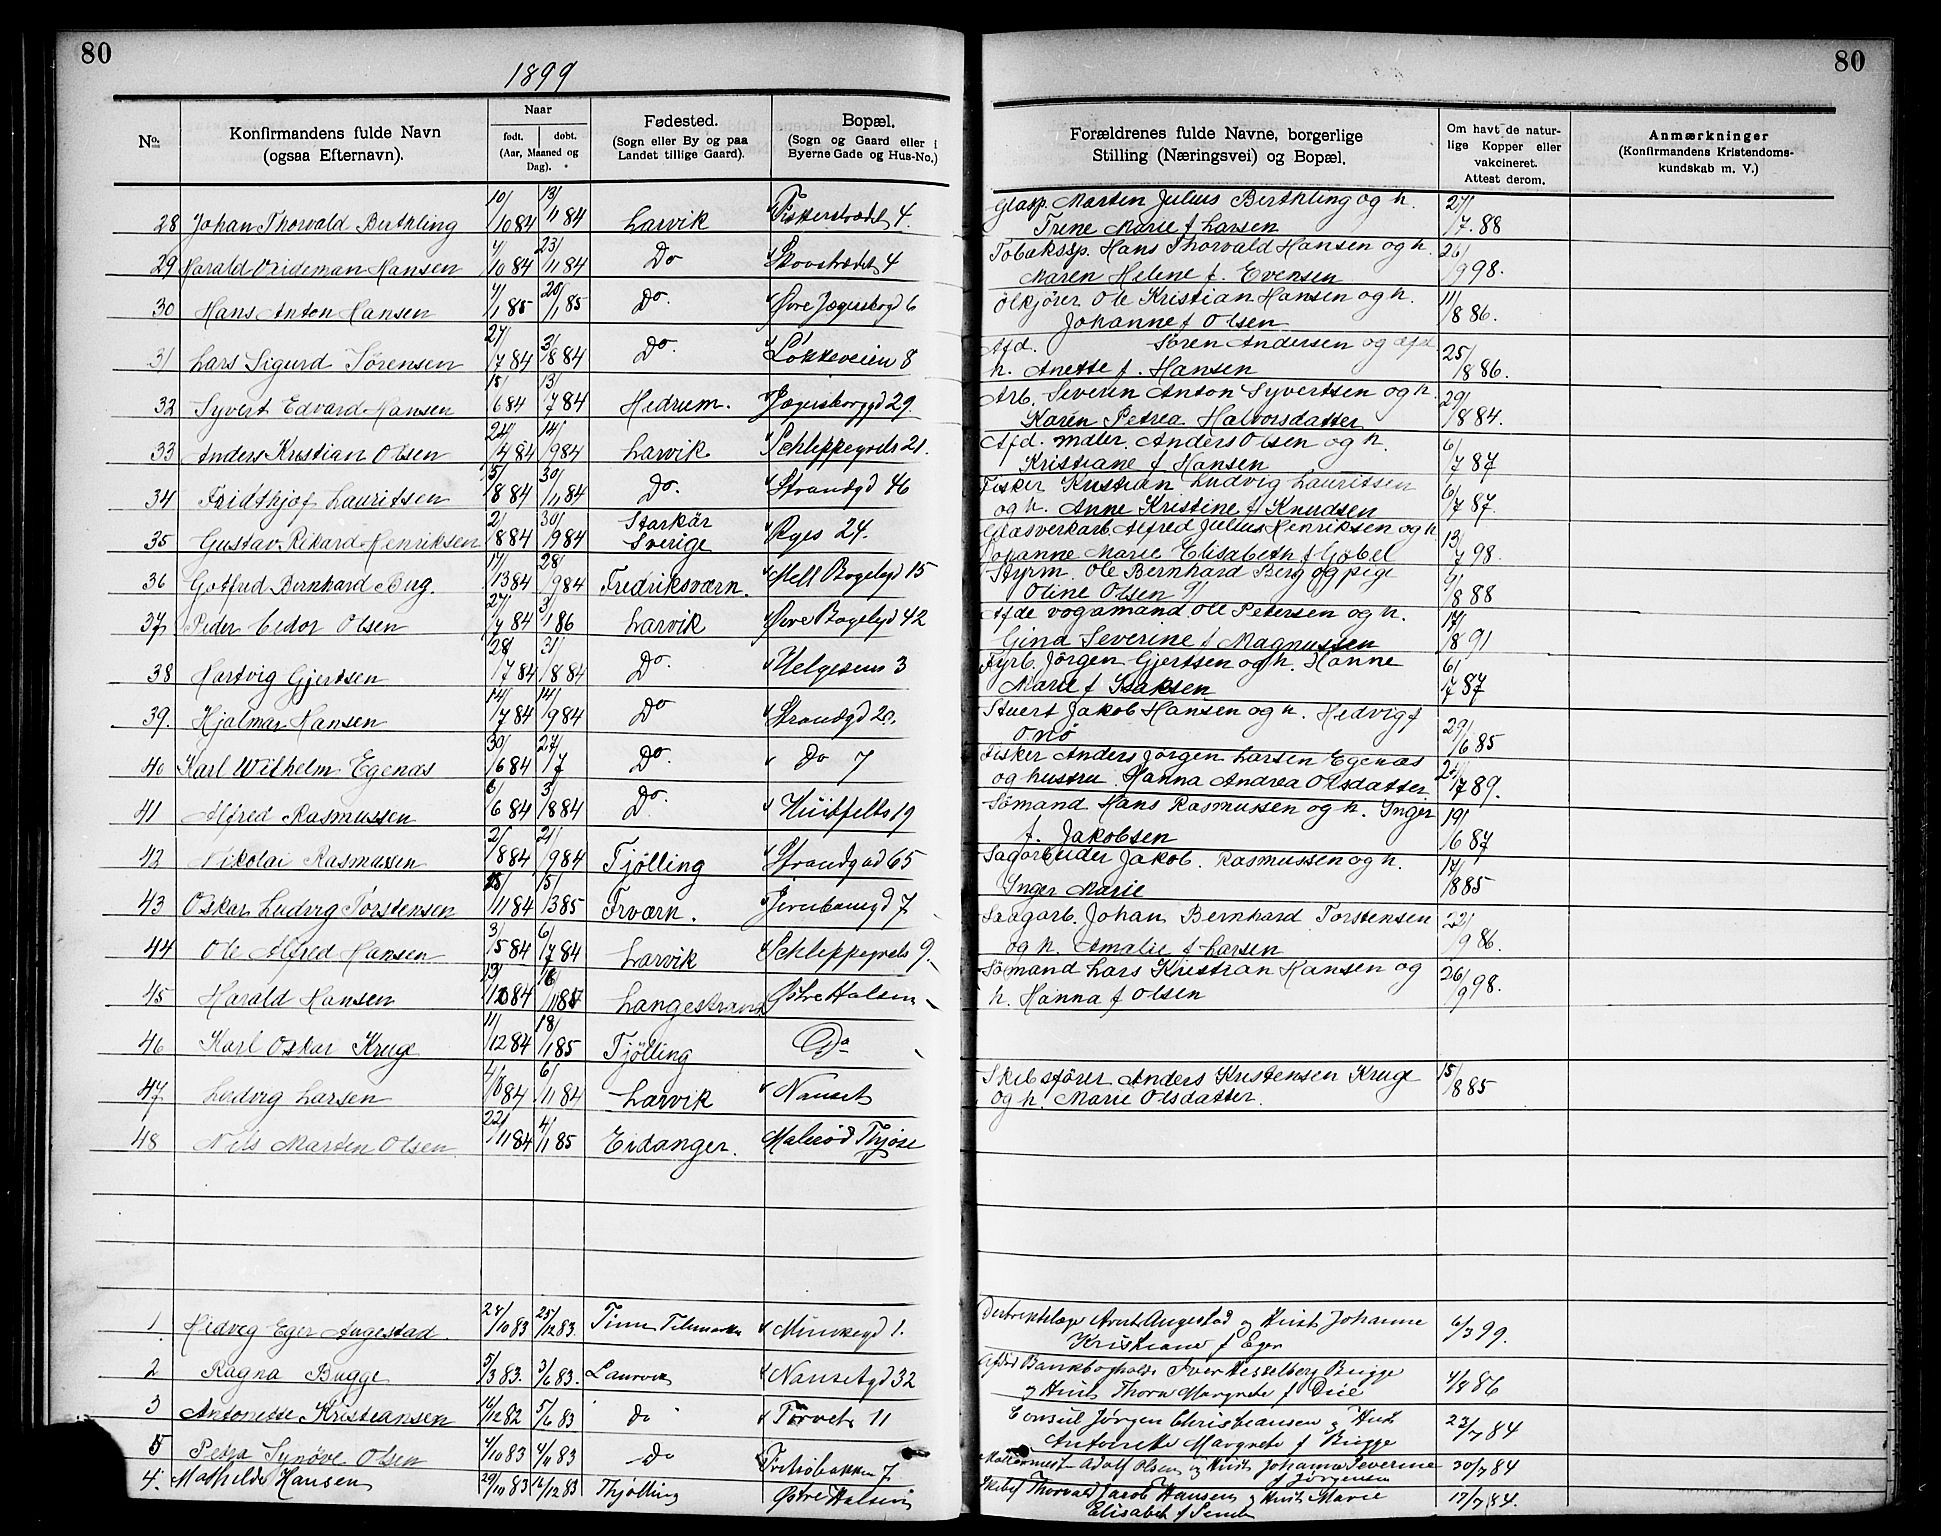 80
1899
No.
Konfirmandens fulde Navn
(ogsaa Efternavn).
Naar
født. døbt.
(Aar, Maaned og
Dag).
Fødested.
(Sogn eller By og paa
Landet tillige Gaard).
Bopæl.
(Sogn og Gaard eller i
Byerne Gade og Hus-No.)
28 Johan Thorvald Berthling 10/10 84 13/11 84 Larvik Fiskerstrædet 4.
29 Harald Vrideman Hansen 4/10 84 23/11 84 Do Skovstrædet 4
30 Hans Anton Hansen 4/1 85 20/1 85 Do. Øvre Jægerskogd 6
31 Lars Sigurd Sørensen 27/7 84 3/8 84 Do. Løkkeveien 8
32 Syvert Edvard Hansen 15/6 84 13/7 84 Hedrum. Jægerskorgyd 29.
33 Anders Kristian Olsen 24/4 84 14/9 84 Larvik. Schleppegrels 21.
34 Fridthjof Lauritsen 5/8 84 30/11 84 Do. Strandgd 46
35 Gustav Rikard Henriksen 2/8 84 30/9 84 Starkär Sverige Ryes 24.
36 Gotfred Bernhard Berg. 17/13 84 28/9 84 Fredriksværn. Mell Bogelyd 15
37 Peder Cedor Olsen 27/7 84 3/1 86 Larvik Øvre Bogelyd 42
38 Hartvig Gjertsen 28/7 84 31/8 84 Do. Helgesens 3
39. Hjalmar Hansen 14/7 84 14/9 84 Do Strandgd 20.
40 Karl Wilhelm Egenæs 30/6 84 27/7 Do. Do 7
41 Alfred Rasmussen 6/6 84 3/8 84 Do. Huidfelts 19
42 Nikolai Rasmussen 2/8 84 21/9 84 Tjølling Strandgad 65
43 Oskar Ludvig Torstensen 28/11 84 15/13 85 Frværn. Jernbanegd 7
44 Ole Alfred Hansen 3/5 84 6/7 84 Larvik Schleppegrels 9.
45 Harald Hansen 13/10 84 16/11 84 Langestrand Østre Halsen
46 Karl Oskar Kruge 11/12 84 18/1 85 Tjölling Do
47 Ludvig Larsen 4/8 84 6/11 84 Larvik Nanset
48 Nils Marten Olsen 22/11 84 4/11 85 Eidanger. Malerød Thjøse
1. Hedvig Eger Augestad. 28/10 83 25/12 83. Tinn Telemarken Minkegd 1.
2 Ragna Bugge 5/3 83. 3/6 83. Laurvik Nansetgd 32
3 Antonette Kristiansen 16/12 82 5/6 83 do Torvet 11
5 Petra Synøve Olsen 4/10 83 4/11 83 do Fritzöbakken 7
4. Mathilde Hansen 29/10 83 16/12 83 Thjølling Østre Halsen
80
Forældrenes fulde Navne, borgerlige
Stilling (Næringsvei) og Bopæl.
Om havt de natur-
lige Kopper eller
vakcineret.
Attest derom.
Anmærkninger
(Konfirmandens Kristendoms-
kundskab m. V.)
Glasp. Marten Julius Berthling og h. 27/
Trene Marie f Larsen 7. 88
Tobakssp. Hans Thorvald Hansen og h. 26/
Maren Helene f. Evensen 9 98.
Ölkjører Ole Kristian Hansen og h. 11/
Johanne f Olsen 8 86.
Afd. Sören Andersen og afd
h. Anette f. Hansen 25/8 86.
Arb. Severin Anton Syvertsen og h. 29/
Karen Petrea Halvorsdatter 8 84.
Afd. maler. Anders Olsen og h. 6/
Kristiane f Hansen 7 87
Fisker Kristian Ludvig Lauritsen
og h. Anne Kristine f Knudsen 6/7 87.
Glasverkarb. Alfred Julius Henriksen og h 13/
Johanne Marie Elisabeth f Gøbel 7 98.
Styrm. Ole Bernhard Berg og pige
Oline Olsen 9/8 88
Afde vognmand Ole Petersen og h. 17/
Gina Severine f Magnussen 8 91
Fyrb. Jörgen Gjertsen og h. Hanne 6/
Marie f Isaksen. 7 87
Stuert Jakob Hansen og h. Hedvig f
Onö 29/6 85
Fisker Anders Jörgen Larsen Egenæs
og hustru Hanna Andrea Olsdatter 21/7 89.
Sömand Hans Rasmussen og h. Inger 19/
f. Jakobsen 6 87
Sagarbeider Jakob. Rasmussen og h. 17/
Inger Marie 8 85
Saagarb. Johan Bernhard Torstensen 22/
og h. Amalie f Larsen 9 86.
Sömand Lars Kristian Hansen og 26/
h. Hanna f Olsen 9 98.
Skibsförer Anders Kristensen Kruge 15/
og h. Marie Olsdatter. 8 85
Destriktslæge Arnt Augestad og Hust Johanne 6/3 99.
Kristiane f Eger
Afdød Bankbogholder Iver Hesselberg Bugge
og Hust Thora Margrete f Due 4/8 86
Consul Jörgen Christiansen og Hust 23/7 84
Antoinette Margrete f Bugge
Adolf Olsen og Hust Johanna Severine 30/7 84
f Jørgensen
Skibsf Thorvald Jacob Hansen og Hust Marie 17/7 84.
Elisabet f